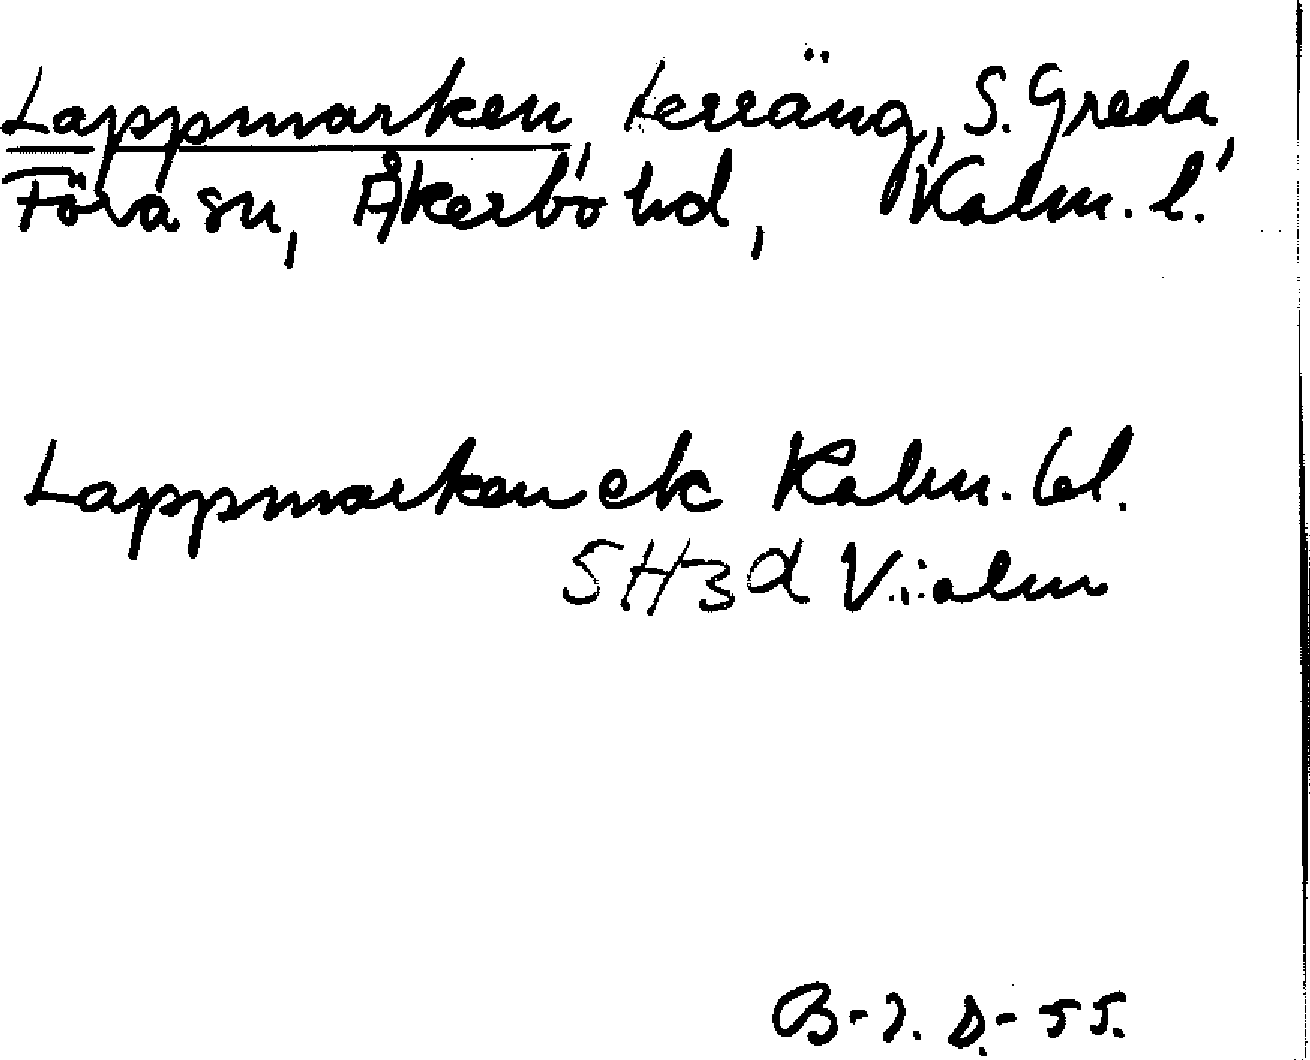 Lappmarken, terräng, S. Greda,
Föra sn, Åkerbo hd, Kalm. l.
Lappmarken ek Kalm. bl.
5H3d V:
B-J. D.-55.